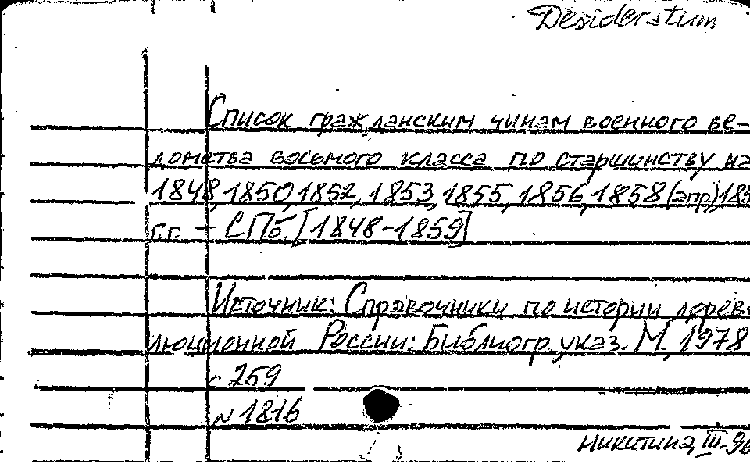 Desideratum
Список гражданским чинам военного ве-
домства восьмого класса по старшинству на
1848, 1850, 1852, 1853, 1855, 1856, 1858 (апр), 185
г.г. – СПб. [1848-1859]
Источник: Справочники по истории дорев-
люционной России: Библиогр. указ. М., 1978
с 259
N 1816
Никитина, III-